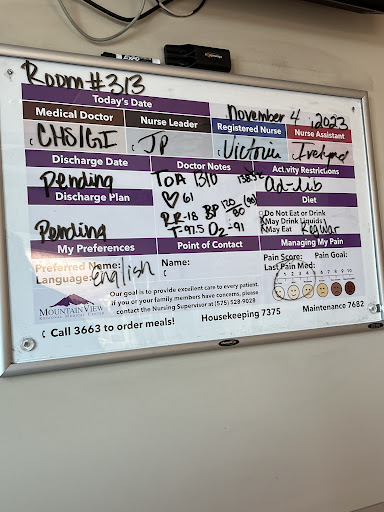 EXPO
Room #313
Today's Date
November 4, 2023
Medical Doctor Nurse Leader Registered Nurse Nurse Assistant
CHS/GI JP Victoria
Discharge Date Doctor Notes Activity Restrictions
Pending TOA Ad-lib
Discharge Plan Diet
♡ 61
RR-18 BP 120/80
T-97.5 O2-91
Do Not Eat or Drink
May Drink Liquids
May Eat Regular
Pending
My Preferences Point of Contact Managing My Pain
Preferred Name: Name: Pain Score: Pain Goal:
Language: English Last Pain Med:
0 1 2 3 4 5 6 7 8 9 10
MOUNTAINVIEW
REGIONAL MEDICAL CENTER
Our goal is to provide excellent care to every patient.
If you or your family members have concerns, please
contact the Nursing Supervisor at (575) 528-9028
Call 3663 to order meals! Housekeeping 7375 Maintenance 7682